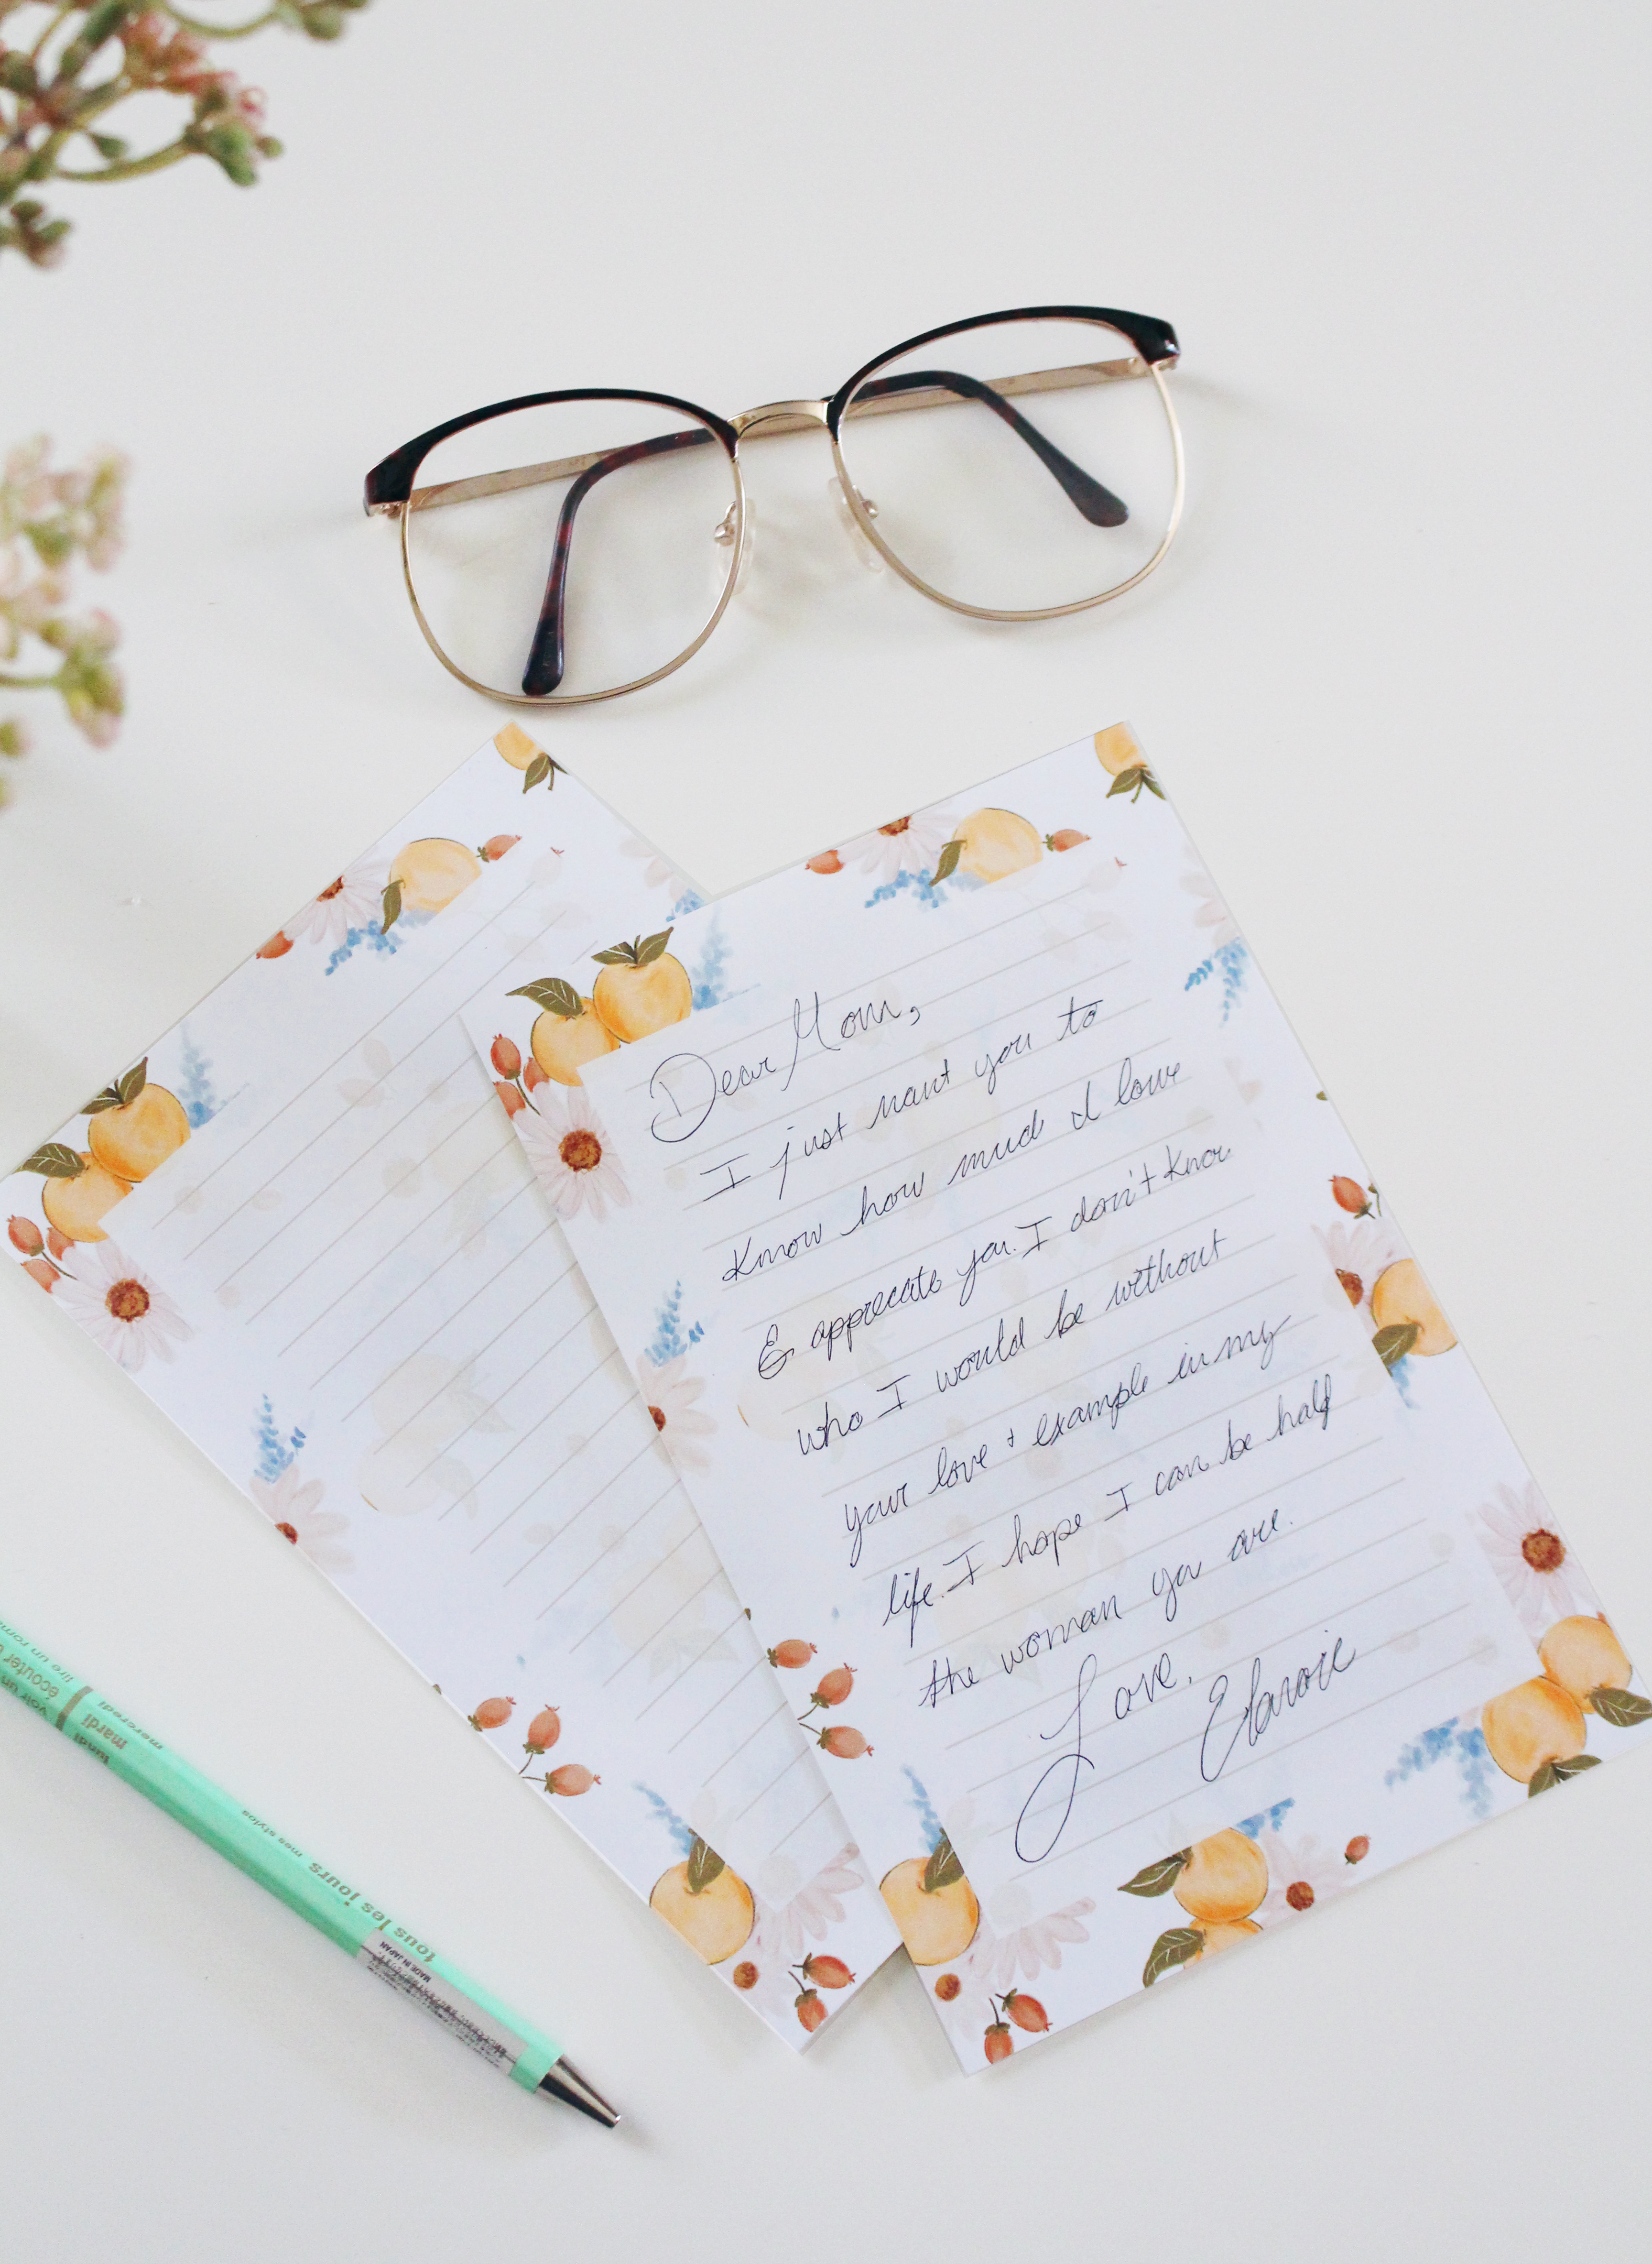 Dear Mom,
I just want you to
Know how much I love
& appreciate you. I don't know
who I would be without
your love & example in my
life. I hope I can be half
the woman you are.
Love,
lundi
mardi
mercredi
écouter
lire un roma
voir un
mes stylos
tous les jours
MADE IN JAPAN